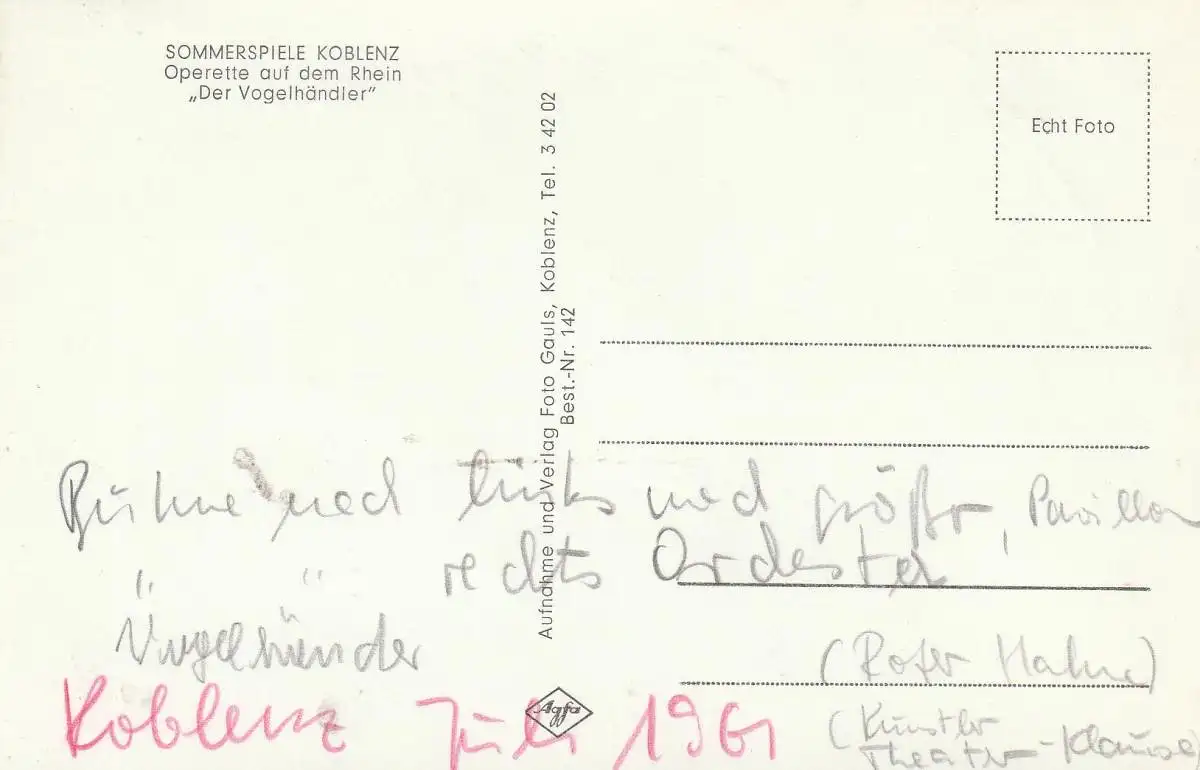 SOMMERSPIELE KOBLENZ
Operette auf dem Rhein
„Der Vogelhändler"
Echt Foto
Aufnahme und Verlag Foto Gauls, Koblenz, Tel. 3 42 02
Best.-Nr. 142
Bühne nach links noch größer, Pavillon
" " rechts Orchester
Vogelhändler
(Roter Hahn)
Koblenz Juli 1961
Agfa
(Künstler
Theater-Klause